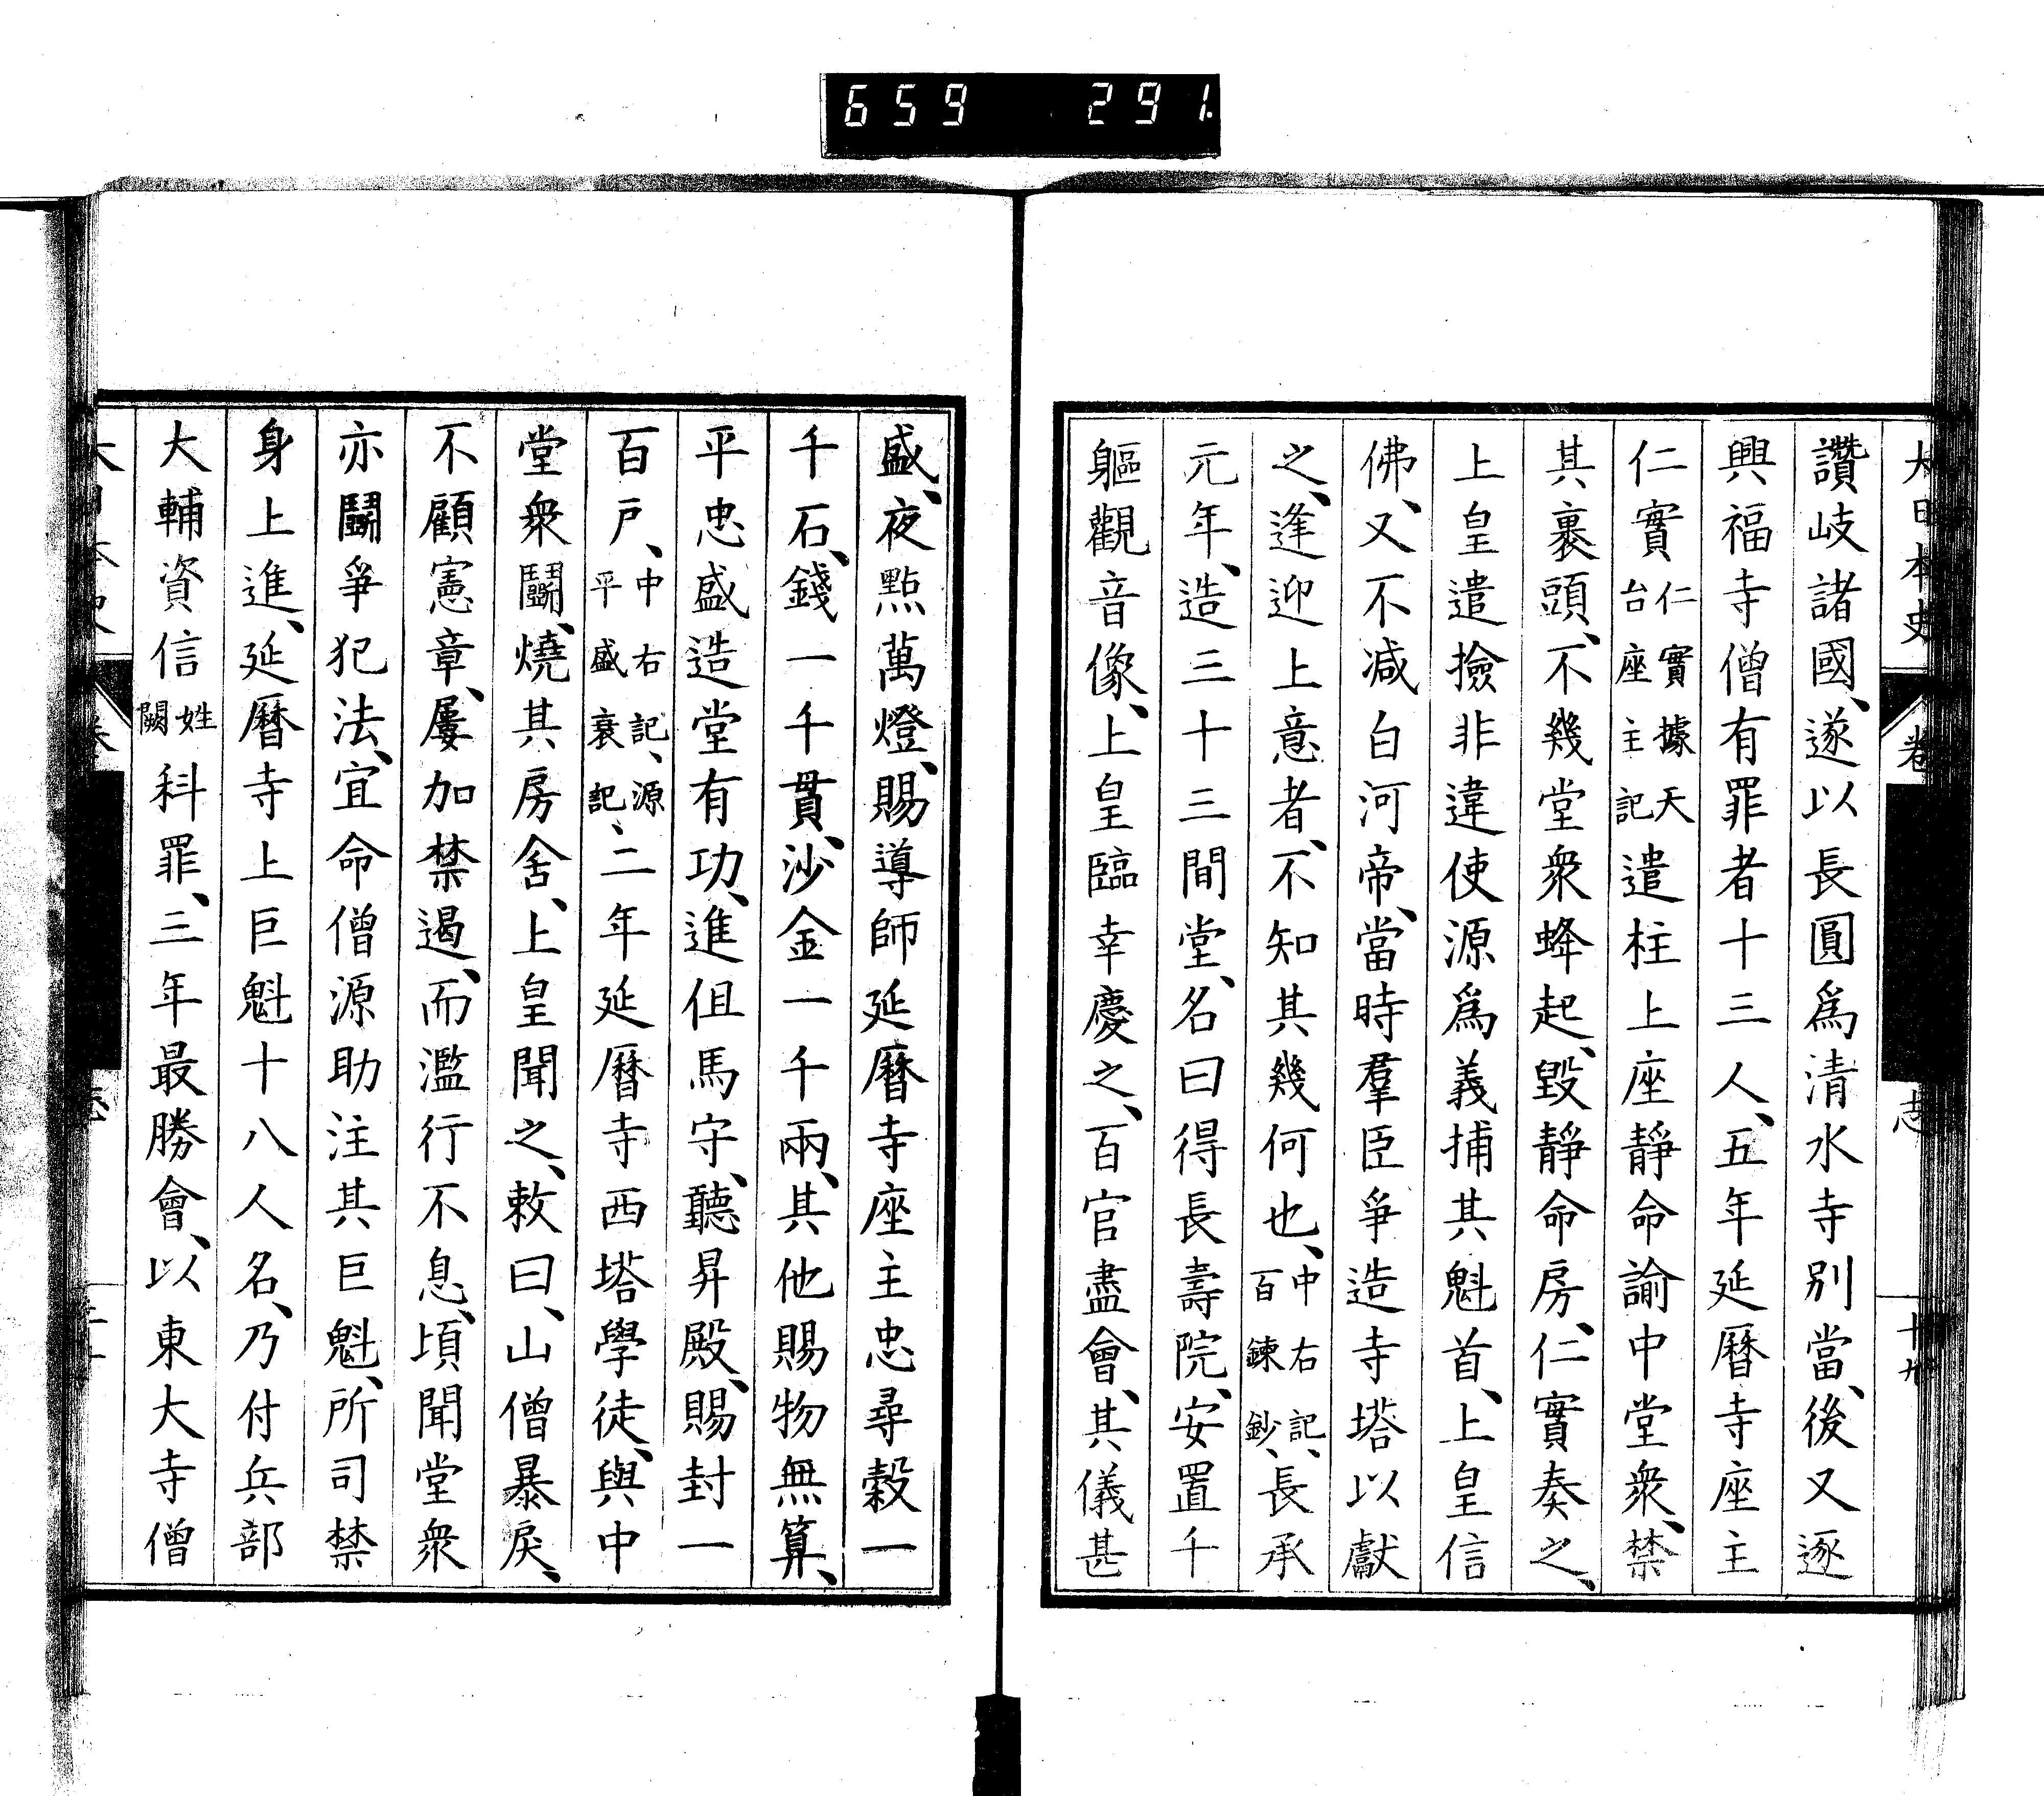 659 291
大日本史 卷 志 十九
讚岐諸國、遂以長圓爲清水寺別當、後又逐
興福寺僧有罪者十三人、五年延曆寺座主
仁實仁實據天台座主記遣柱上座靜命諭中堂衆、禁
其裹頭、不幾堂衆蜂起、毀靜命房、仁實奏之、
上皇遣撿非違使源爲義捕其魁首、上皇信
佛、又不減白河帝、當時羣臣爭造寺塔以獻
之、逢迎上意者、不知其幾何也、中右記、百鍊鈔、長承
元年、造三十三間堂、名曰得長壽院、安置千
軀觀音像、上皇臨幸慶之、百官盡會、其儀甚
盛、夜點萬燈、賜導師延曆寺座主忠尋穀一
千石、錢一千貫、沙金一千兩、其他賜物無算、
平忠盛造堂有功、進但馬守、聽昇殿、賜封一
百戶、中右記、源平盛衰記、二年延曆寺西塔學徒、與中
堂衆鬭、燒其房舍、上皇聞之、敕曰、山僧暴戾、
不顧憲章、屢加禁遏、而濫行不息、頃聞堂衆
亦鬭爭犯法、宜命僧源助注其巨魁、所司禁
身上進、延曆寺上巨魁十八人名、乃付兵部
大輔資信姓闕科罪、三年最勝會、以東大寺僧